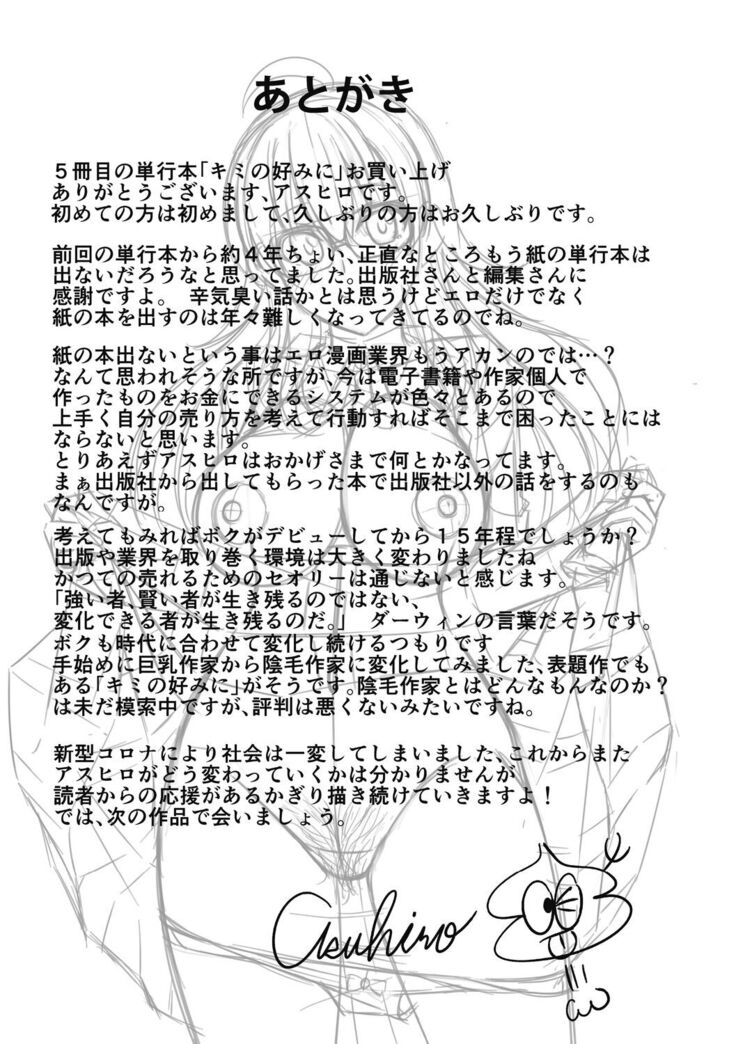 あとがき
５冊目の単行本｢キミの好みに｣お買い上げ
ありがとうございます､アスヒロです｡
初めての方は初めまして､久しぶりの方はお久しぶりです｡
前回の単行本から約４年ちょい､正直なところもう紙の単行本は
出ないだろうなと思ってました｡出版社さんと編集さんに
感謝ですよ｡　辛気臭い話かとは思うけどエロだけでなく
紙の本を出すのは年々難しくなってきてるのでね｡
紙の本出ないという事はエロ漫画業界もうアカンのでは…？
なんて思われそうな所ですが､今は電子書籍や作家個人で
作ったものをお金にできるシステムが色々とあるので
上手く自分の売り方を考えて行動すればそこまで困ったことには
ならないと思います｡
とりあえずアスヒロはおかげさまで何とかなってます｡
まぁ出版社から出してもらった本で出版社以外の話をするのも
なんですが｡
考えてもみればボクがデビューしてから１５年程でしょうか？
出版や業界を取り巻く環境は大きく変わりましたね
かつての売れるためのセオリーは通じないと感じます｡
｢強い者､賢い者が生き残るのではない､
変化できる者が生き残るのだ｡｣　ダーウィンの言葉だそうです｡
ボクも時代に合わせて変化し続けるつもりです
手始めに巨乳作家から陰毛作家に変化してみました､表題作でも
ある｢キミの好みに｣がそうです｡陰毛作家とはどんなもんなのか？
は未だ模索中ですが､評判は悪くないみたいですね｡
新型コロナにより社会は一変してしまいました､これからまた
アスヒロがどう変わっていくかは分かりませんが
読者からの応援があるかぎり描き続けていきますよ！
では､次の作品で会いましょう｡
Asuhiro